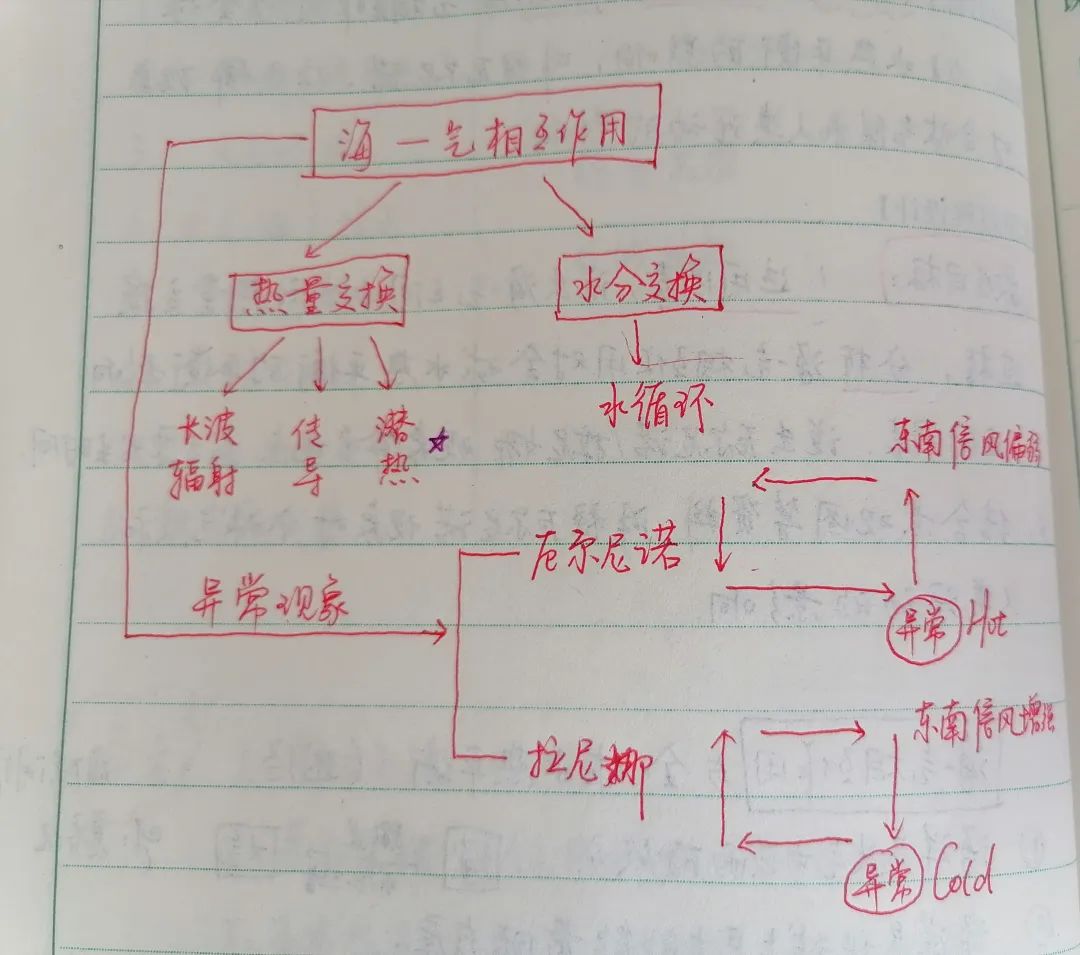 海一气相互作用
热量交换
水分交换
长波
辐射
传
导
潜
热
水循环
东南信风偏弱
厄尔尼诺
异常 Hot
异常现象
东南信风增强
拉尼娜
异常 Cold